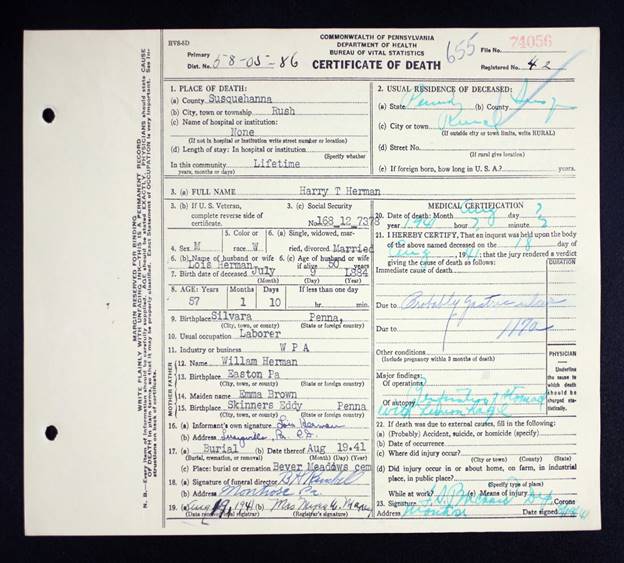 HVS-5D
COMMONWEALTH OF PENNSYLVANIA
DEPARTMENT OF HEALTH
BUREAU OF VITAL STATISTICS
CERTIFICATE OF DEATH
655
File No. 74056
Primary
Dist. No. 58-05-86
Registered No. 42
1. PLACE OF DEATH:
(a) County Susquehanna
(b) City, town or township Rush
(c) Name of hospital or institution:
None
(If not in hospital or institution write street number or location)
(d) Length of stay: In hospital or institution
(Specify whether
In this community Lifetime
years, months or days)
2. USUAL RESIDENCE OF DECEASED:
(a) State (b) County
(c) City or town Rural
(If outside city or town limits, write RURAL)
(d) Street No.
(If rural give location)
(e) If foreign born, how long in U. S. A.? years
3. (a) FULL NAME Harry T Herman
3. (b) If U. S. Veteran,
complete reverse side of
certificate.
3. (c) Social Security
No. 168_12_7378
4. Sex M
5. Color or
race W
6. (a) Single, widowed, married, divorced Married
6. (b) Name of husband or wife
Lois Herman
6. (c) Age of husband or wife
if alive 50 years
7. Birth date of deceased July 9 1884
(Month) (Day) (Year)
8. AGE: Years Months Days If less than one day
57 1 10 hr. min.
9. Birthplace Silvara Penna,
(City, town, or county) (State or country)
10. Usual occupation Laborer
11. Industry or business W P A
MOTHER FATHER
12. Name Willam Herman
13. Birthplace Easton Pa
(City, town or county) (State or country)
14. Maiden name Emma Brown
15. Birthplace Skinners Eddy Penna
(City, town, or county) (State or country)
16. (a) Informant's own signature Lois Herman
(b) Address
17. (a) Burial (b) Date Aug 19.41
(Burial, cremation, or removal) (Month) (Day) (Year)
(c) Place: burial or cremation Bever Meadows cem
18. (a) Signature of funeral director
(b) Address Montrose Pa.
19. (a) Aug 19, 1941 (b) Mrs
(Date received local registrar) (Registrar's signature)
MEDICAL CERTIFICATION
20. Date of death: Month Aug day ?
year 1941 hour ? minute ?
21. I HEREBY CERTIFY, That an inquest was held upon the body
of the above named deceased on the 18 day of
Aug, 1941; that the jury rendered a verdict
giving the cause of death as follows: DURATION
Immediate cause of death
Due to Probably gastric ulcer
Due to 117a
Other conditions
(Include pregnancy within 3 months of death)
Major findings:
Of operations
Of autopsy Perforation of Stomach
with
PHYSICIAN
Underline
the cause to
which death
should be
charged statistically.
22. If death was due to external causes, fill in the following:
(a) (Probably) Accident, suicide, or homicide (specify)
(b) Date of occurrence
(c) Where did injury occur?
(City or town) (County) (State)
(d) Did injury occur in or about home, on farm, in industrial
place, in public place?
(Specify type of place)
While at work? (e) Means of injury
23. Signature Coroner
Address Montrose
MARGIN RESERVED FOR BINDING